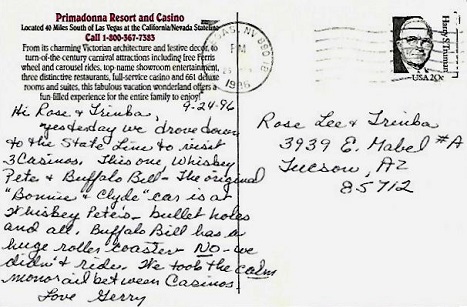 Primadonna Resort and Casino
Located 40 Miles South of Las Vegas at the California/Nevada Stateline
Call 1-800-367-7383
From its charming Victorian architecture and festive decor, to
turn-of-the-century carnival attractions including free Ferris
wheel and carousel rides, top-name showroom entertainment,
three distinctive restaurants, full-service casino and 661 deluxe
rooms and suites, this fabulous vacation wonderland offers a
fun-filled experience for the entire family to enjoy!
Hi Rose & Trinba, 9-24-96
Yesterday we drove down
to the State Line to visit
3 Casinos. This one, Whiskey
Pete & Buffalo Bill - The original
"Bonnie & Clyde" car is at
Whiskey Pete's - bullet holes
and all. Buffalo Bill has a
huge roller coaster NO - we
didn't ride. We took the calm
monorail between Casinos.
Love Gerry
NV
PM
1996
Harry S. Truman
USA 20c
Rose Lee & Trinba
3939 E. Mabel #A
Tucson, AZ
85712